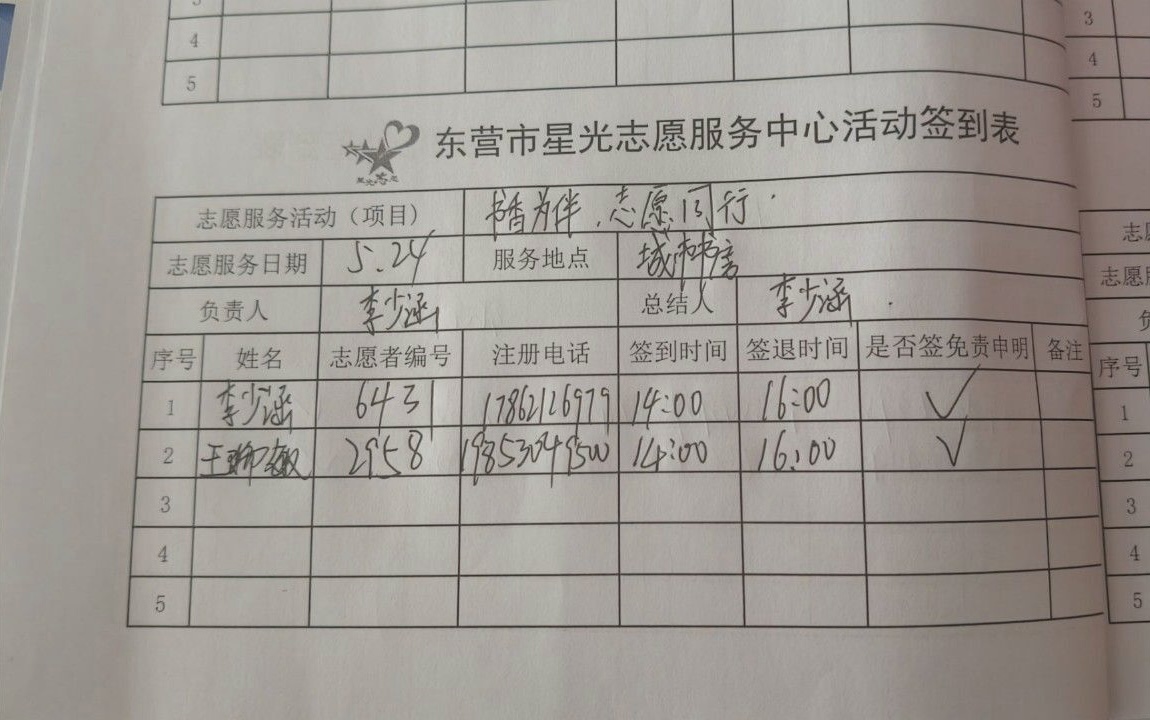 3
4
5
3
4
5
东营市星光志愿服务中心活动签到表
志愿服务活动（项目） 书香为伴、志愿同行.
志愿服务日期 5.24 服务地点 城市书房
负责人 李少涵 总结人 李少涵
序号 姓名 志愿者编号 注册电话 签到时间 签退时间 是否签免责申明 备注
1 李少涵 6431 17862126979 14:00 16:00 ✓
2 王 2958 19853049500 14:00 16:00 ✓
3
4
5
志愿
志愿服
负
序号
1
2
3
4
5